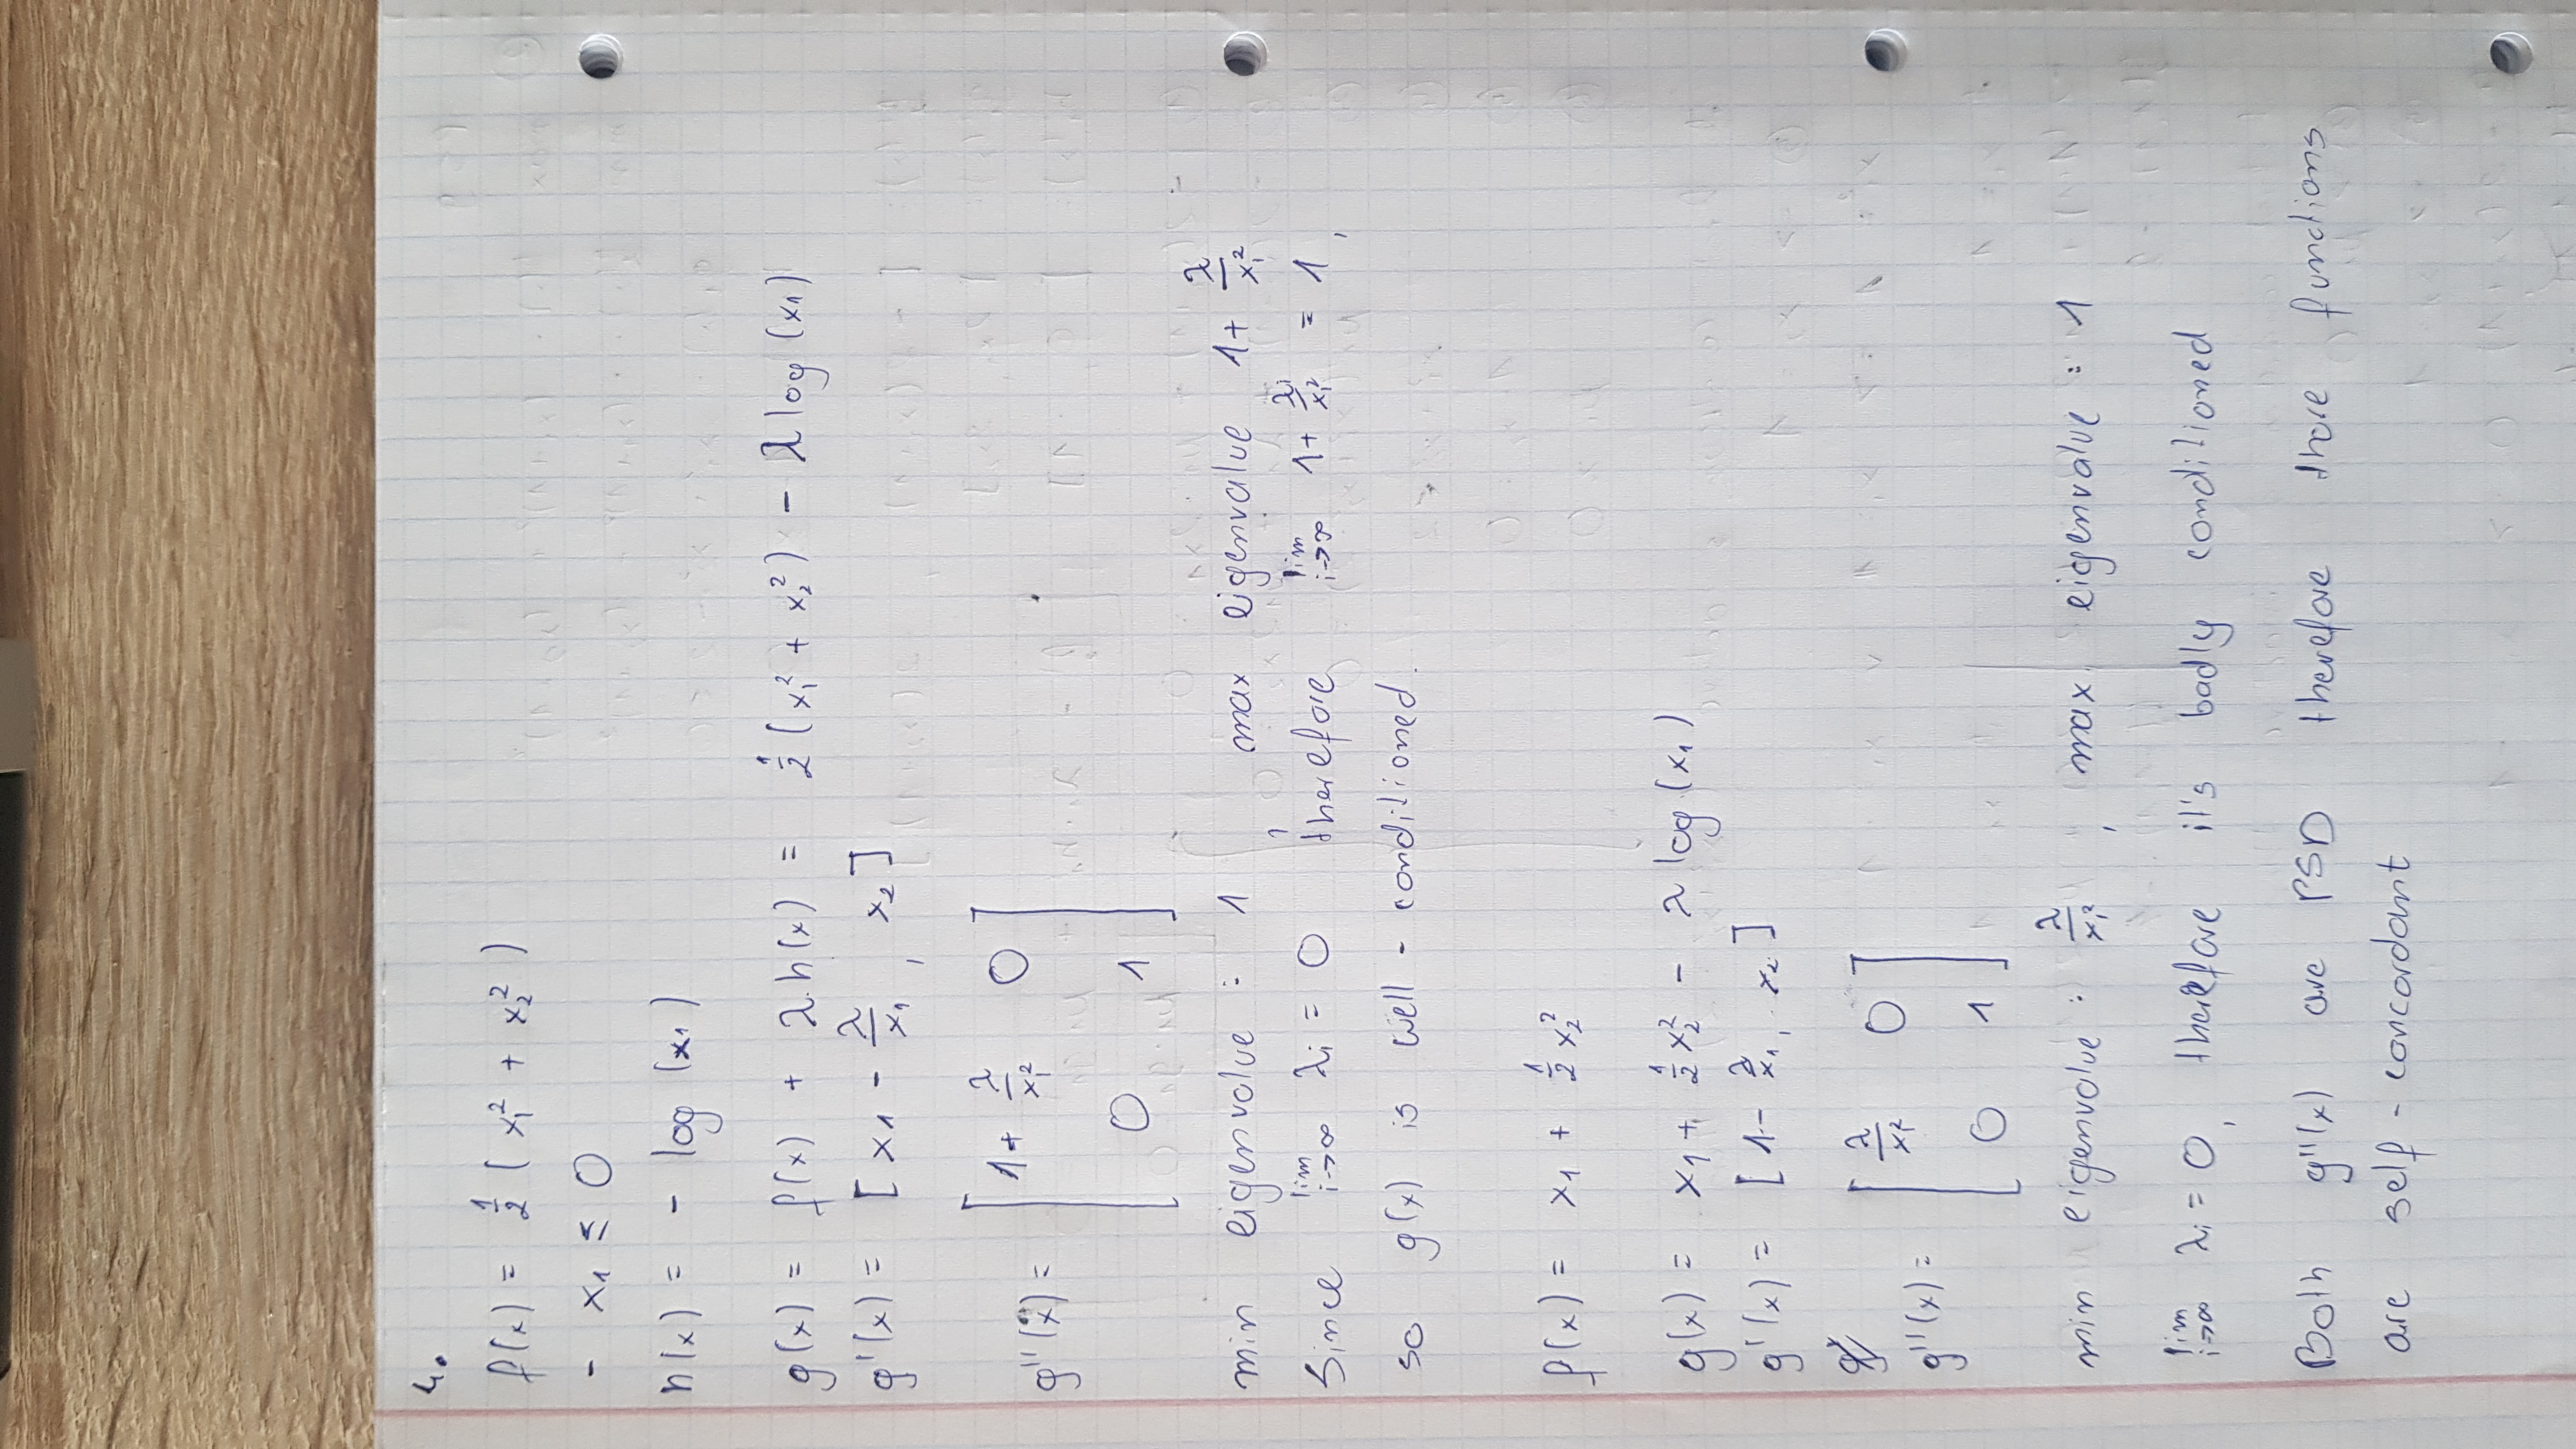 4.
f(x) = 1/2 ( x₁² + x₂² )
- x₁ ≤ 0
h(x) = - log (x₁)
g(x) = f(x) + λ·h(x) = 1/2 (x₁² + x₂²) - λ log (x₁)
g'(x) = [ x₁ - λ/x₁ , x₂ ]
g''(x) = [ 1 + λ/x₁² 0
0 1 ]
min eigenvalue : 1 , max eigenvalue 1 + λ/x₁²
Since lim i→∞ λᵢ = 0 therefore lim i→∞ 1 + λᵢ/x₁² = 1 ,
so g(x) is well - conditioned.
f(x) = x₁ + 1/2 x₂²
g(x) = x₁ + 1/2 x₂² - λ log (x₁)
g'(x) = [ 1 - λ/x₁ , x₂ ]
g''(x) = [ λ/x₁² 0
0 1 ]
min eigenvalue : λ/x₁² , max eigenvalue : 1
lim i→∞ λᵢ = 0 , therefore it's badly conditioned
Both g''(x) are PSD therefore those functions
are self - concordant